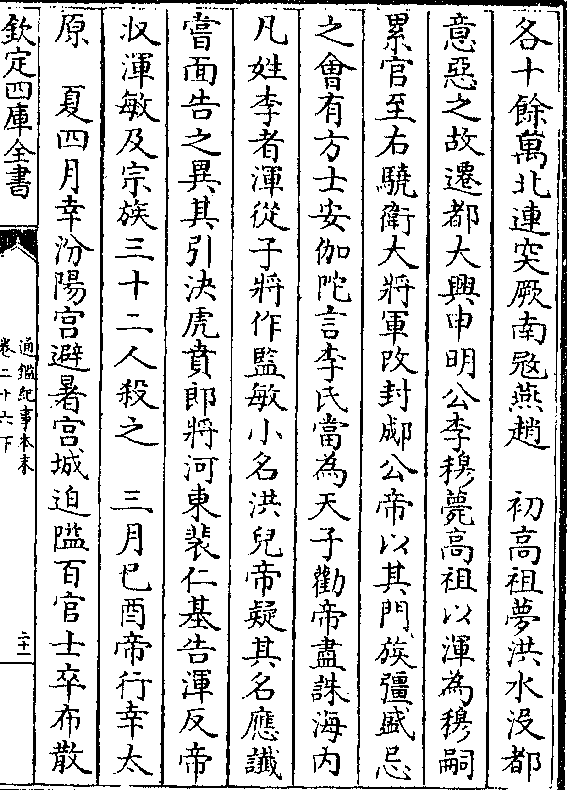 各十餘萬北連突厥南㓂燕趙　初高祖夢洪水没都
意惡之故遷都大興申明公李穆薨高祖以渾為穆嗣
累官至右驍衛大將軍改封郕公帝以其門族彊盛忌
之會有方士安伽陀言李氏當為天子勸帝盡誅海内
凡姓李者渾從子將作監敏小名洪兒帝疑其名應讖
嘗面告之冀其引決虎賁郎將河東裴仁基告渾反帝
収渾敏及宗族三十二人殺之　三月已酉帝行幸太
原　夏四月幸汾陽宫避暑宫城迫隘百官士卒布散
欽定四庫全書
通鑑紀事本末
卷二十六下
二十一